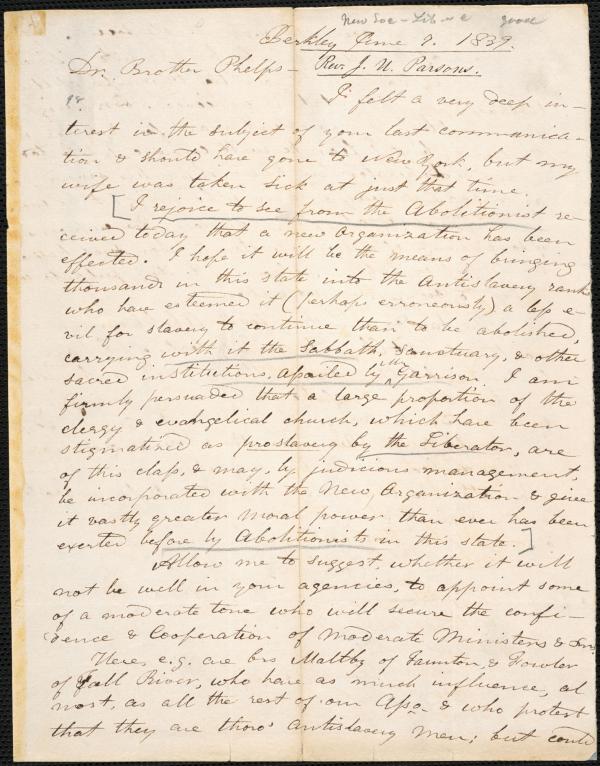 New Soc - Lib good
Berkley June 7. 1839.
Dr. Brother Phelps - Rev. J. U. Parsons.
I felt a very deep in-
terest in the subject of your last communica-
tion & should have gone to New York, but my
wife was taken sick at just that time.
[I rejoice to see from the Abolitionist re-
ceived today that a new organization has been
effected. I hope it will be the means of bringing
thousands in this state into the Antislavery ranks
who have esteemed it (perhaps erroneously) a less e-
vil for slavery to continue than to be abolished,
carrying with it the Sabbath, Sanctuary, & other
sacred institutions, assailed by Mr Garrison. I am
firmly persuaded that a large proportion of the
clergy & evangelical church, which have been
stigmatized as proslavery by the Liberator, are
of this class, & may, by judicious management,
be incorporated with the New Organization & give
it vastly greater moral power than ever has been
exerted before by Abolitionists in this state.]
Allow me to suggest, whether it will
not be well in your agencies, to appoint some
of a moderate tone who will secure the confi-
dence & Cooperation of moderate Ministers &
Here, e.g. are brs Maltby of Taunton, & Fowler
of Fall River, who have as much influence, al
most, as all the rest of our Asso. & who protest
that they are thoro' antislavery men; but could